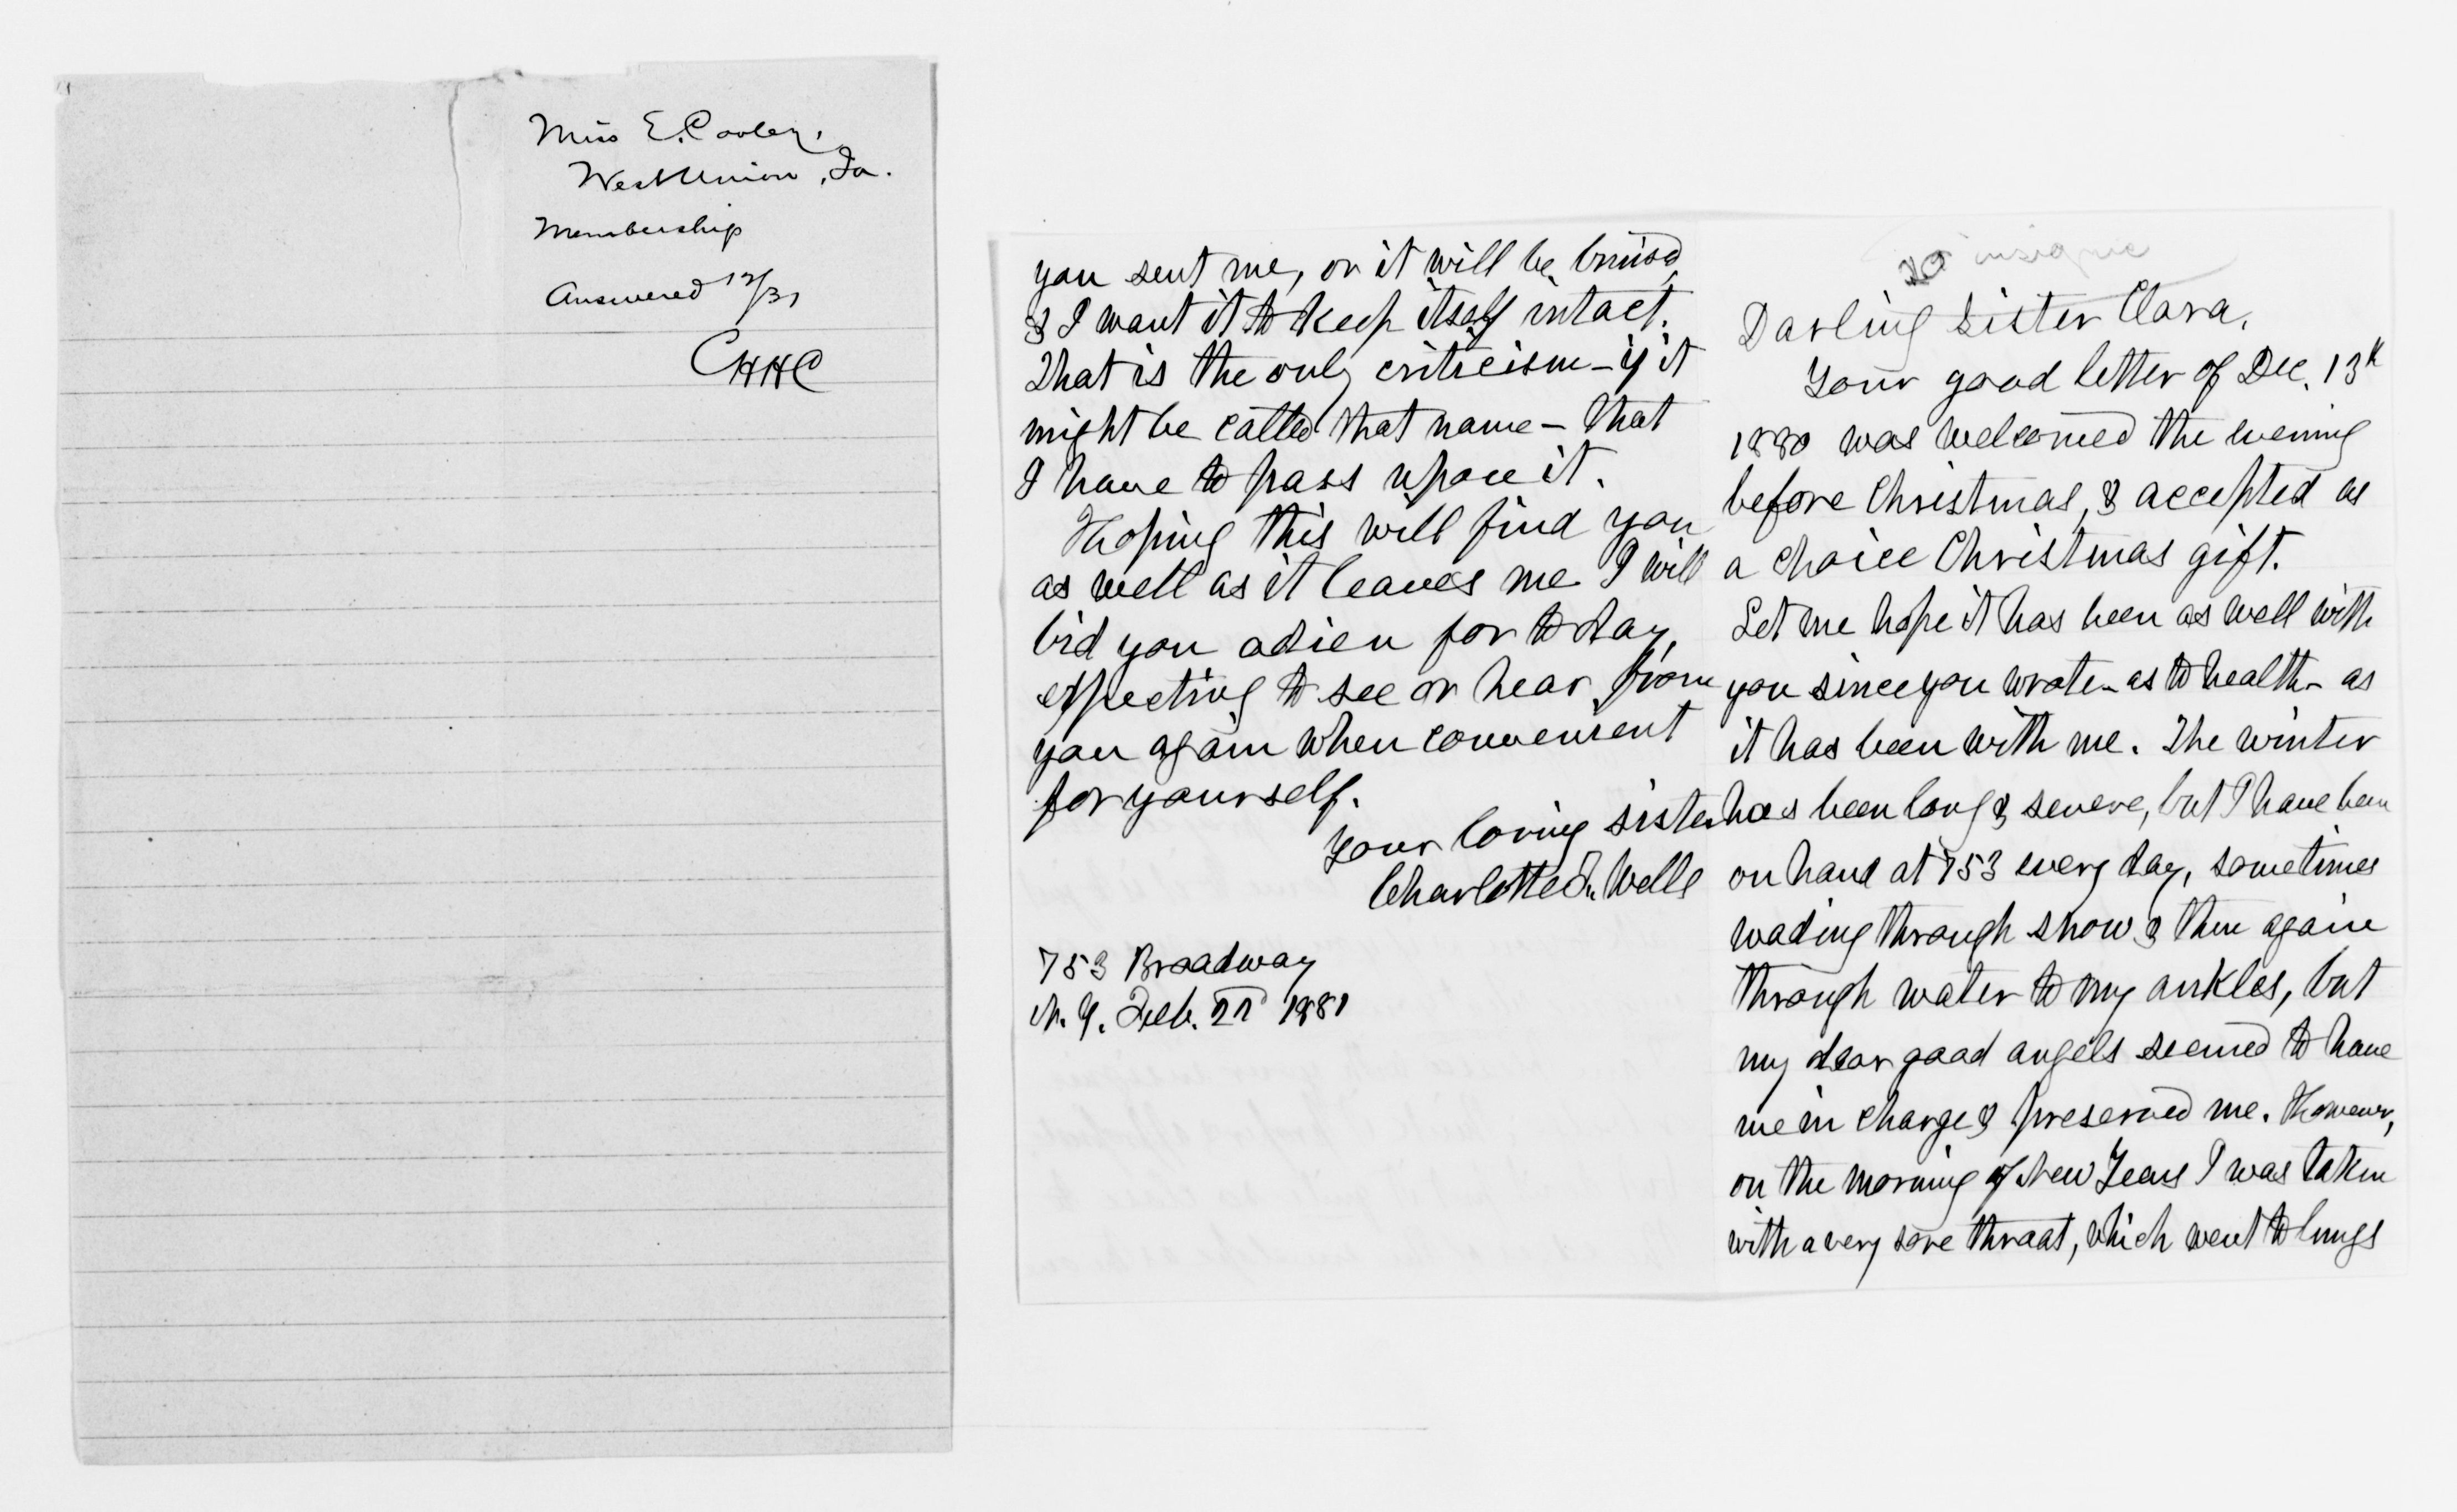 Miss E. Cooley,
West Union, Ia.
Membership
Answered 12/31
CHHC
you sent me, or it will be bruised,
& I want it to keep itself intact.
That is the only criticism – if it
might be called that name – that
I have to pass upon it.
Hoping this will find you
as well as it leaves me I will
bid you adieu for to day,
expecting to see or hear from
you again when convenient
for yourself.
Your loving sister
Charlotte F. Wells
753 Broadway
N.Y. Feb. 22d 1881
Darling Sister Clara,
Your good letter of Dec. 13th
1880 was welcomed the evening
before Christmas, & accepted as
a choice Christmas gift.
Let me hope it has been as well with
you since you wrote – as to health – as
it has been with me. The winter
has been long & severe, but I have been
on hand at 753 every day, sometimes
wading through snow & then again
through water to my ankles, but
my dear good angels seemed to have
me in charge & preserved me. However,
on the morning of New Years I was taken
with a very sore throat, which went to lungs